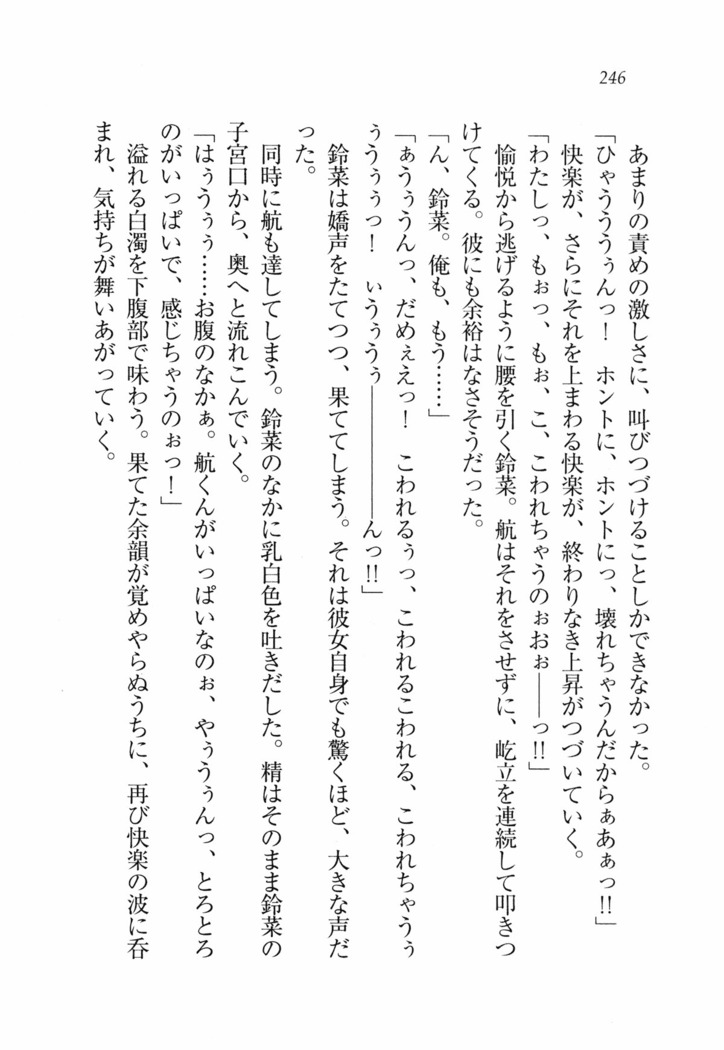 246
あまりの責めの激しさに、叫びつづけることしかできなかった。
「ひゃうううぅんっ！　ホントに、ホントにっ、壊れちゃうんだからぁあぁっ!!」
快楽が、さらにそれを上まわる快楽が、終わりなき上昇がつづいていく。
「わたしっ、もぉっ、もぉ、こ、こわれちゃうのぉおぉ――っ!!」
愉悦から逃げるように腰を引く鈴菜。航はそれをさせずに、屹立を連続して叩きつ
けてくる。彼にも余裕はなさそうだった。
「ん、鈴菜。俺も、もう……」
「ぁうぅうんっ、だめぇえっ！　こわれるぅっ、こわれるこわれる、こわれちゃうぅ
ぅうぅぅっ！　ぃうぅうぅ――――んっ!!」
鈴菜は嬌声をたてつつ、果ててしまう。それは彼女自身でも驚くほど、大きな声だ
った。
同時に航も達してしまう。鈴菜のなかに乳白色を吐きだした。精はそのまま鈴菜の
子宮口から、奥へと流れこんでいく。
「はぅうぅぅ……お腹のなかぁ。航くんがいっぱいなのぉ、やぅうぅんっ、とろとろ
のがいっぱいで、感じちゃうのぉっ！」
溢れる白濁を下腹部で味わう。果てた余韻が覚めやらぬうちに、再び快楽の波に呑
まれ、気持ちが舞いあがっていく。